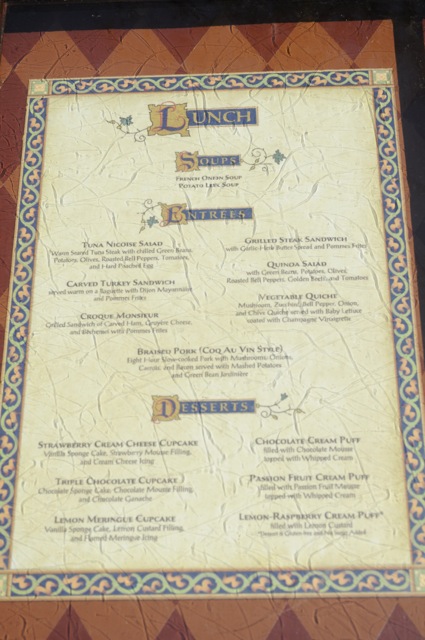 LUNCH
SOUPS
FRENCH ONION SOUP
POTATO LEEK SOUP
ENTREES
TUNA NICOISE SALAD
Warm Seared Tuna Steak with chilled Green Beans,
Potatoes, Olives, Roasted Bell Peppers, Tomatoes,
and Hard Poached Egg
CARVED TURKEY SANDWICH
served warm on a Baguette with Dijon Mayonnaise
and Pommes Frites
CROQUE MONSIEUR
Grilled Sandwich of Carved Ham, Gruyere Cheese,
and Béchamel with Pommes Frites
GRILLED STEAK SANDWICH
with Garlic-Herb Butter Spread and Pommes Frites
QUINOA SALAD
with Green Beans, Potatoes, Olives,
Roasted Bell Peppers, Golden Beets, and Tomatoes
VEGETABLE QUICHE
Mushroom, Zucchini, Bell Pepper, Onion,
and Chive Quiche served with Baby Lettuce
tossed with Champagne Vinaigrette
BRAISED PORK (COQ AU VIN STYLE)
Eight Hour Slow-cooked Pork with Mushrooms, Onions,
Carrots, and Bacon served with Mashed Potatoes
and Green Bean Jardinière
DESSERTS
STRAWBERRY CREAM CHEESE CUPCAKE
Vanilla Sponge Cake, Strawberry Mousse Filling,
and Cream Cheese Icing
TRIPLE CHOCOLATE CUPCAKE
Chocolate Sponge Cake, Chocolate Mousse Filling,
and Chocolate Ganache
LEMON MERINGUE CUPCAKE
Vanilla Sponge Cake, Lemon Custard Filling,
and Flamed Meringue Icing
CHOCOLATE CREAM PUFF
filled with Chocolate Mousse
topped with Whipped Cream
PASSION FRUIT CREAM PUFF
filled with Passion Fruit Mousse
topped with Whipped Cream
LEMON-RASPBERRY CREAM PUFF*
filled with Lemon Custard
*Dessert is Gluten-free and No Sugar Added